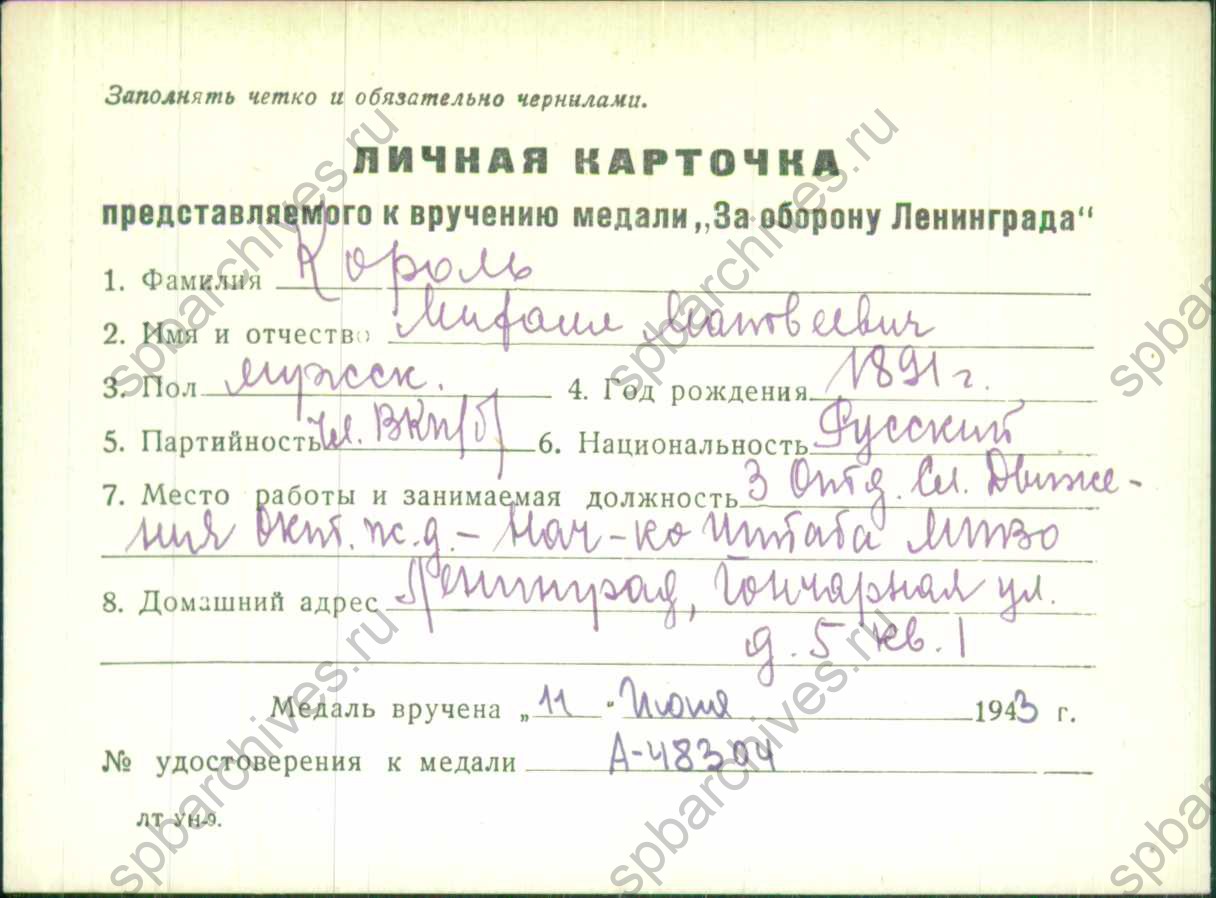 Заполнять четко и обязательно чернилами.
ЛИЧНАЯ КАРТОЧКА
представляемого к вручению медали „За оборону Ленинграда“
1. Фамилия Король
2. Имя и отчество Михаил Матвеевич
3. Пол мужск. 4. Год рождения 1891 г.
5. Партийность чл. ВКП(б) 6. Национальность Русский
7. Место работы и занимаемая должность 3 Отд. Сл. Движе-
ния Окт. ж.д. - Нач-ко Штаба МПВО
8. Домашний адрес Ленинград, Гончарная ул.
д. 5 кв. 1
Медаль вручена „11“ Июня 1943 г.
№ удостоверения к медали А-48304
ЛТ УН-9.
spbarchives.ru
spbarchives.ru
spbarchives.ru
spbarchives.ru